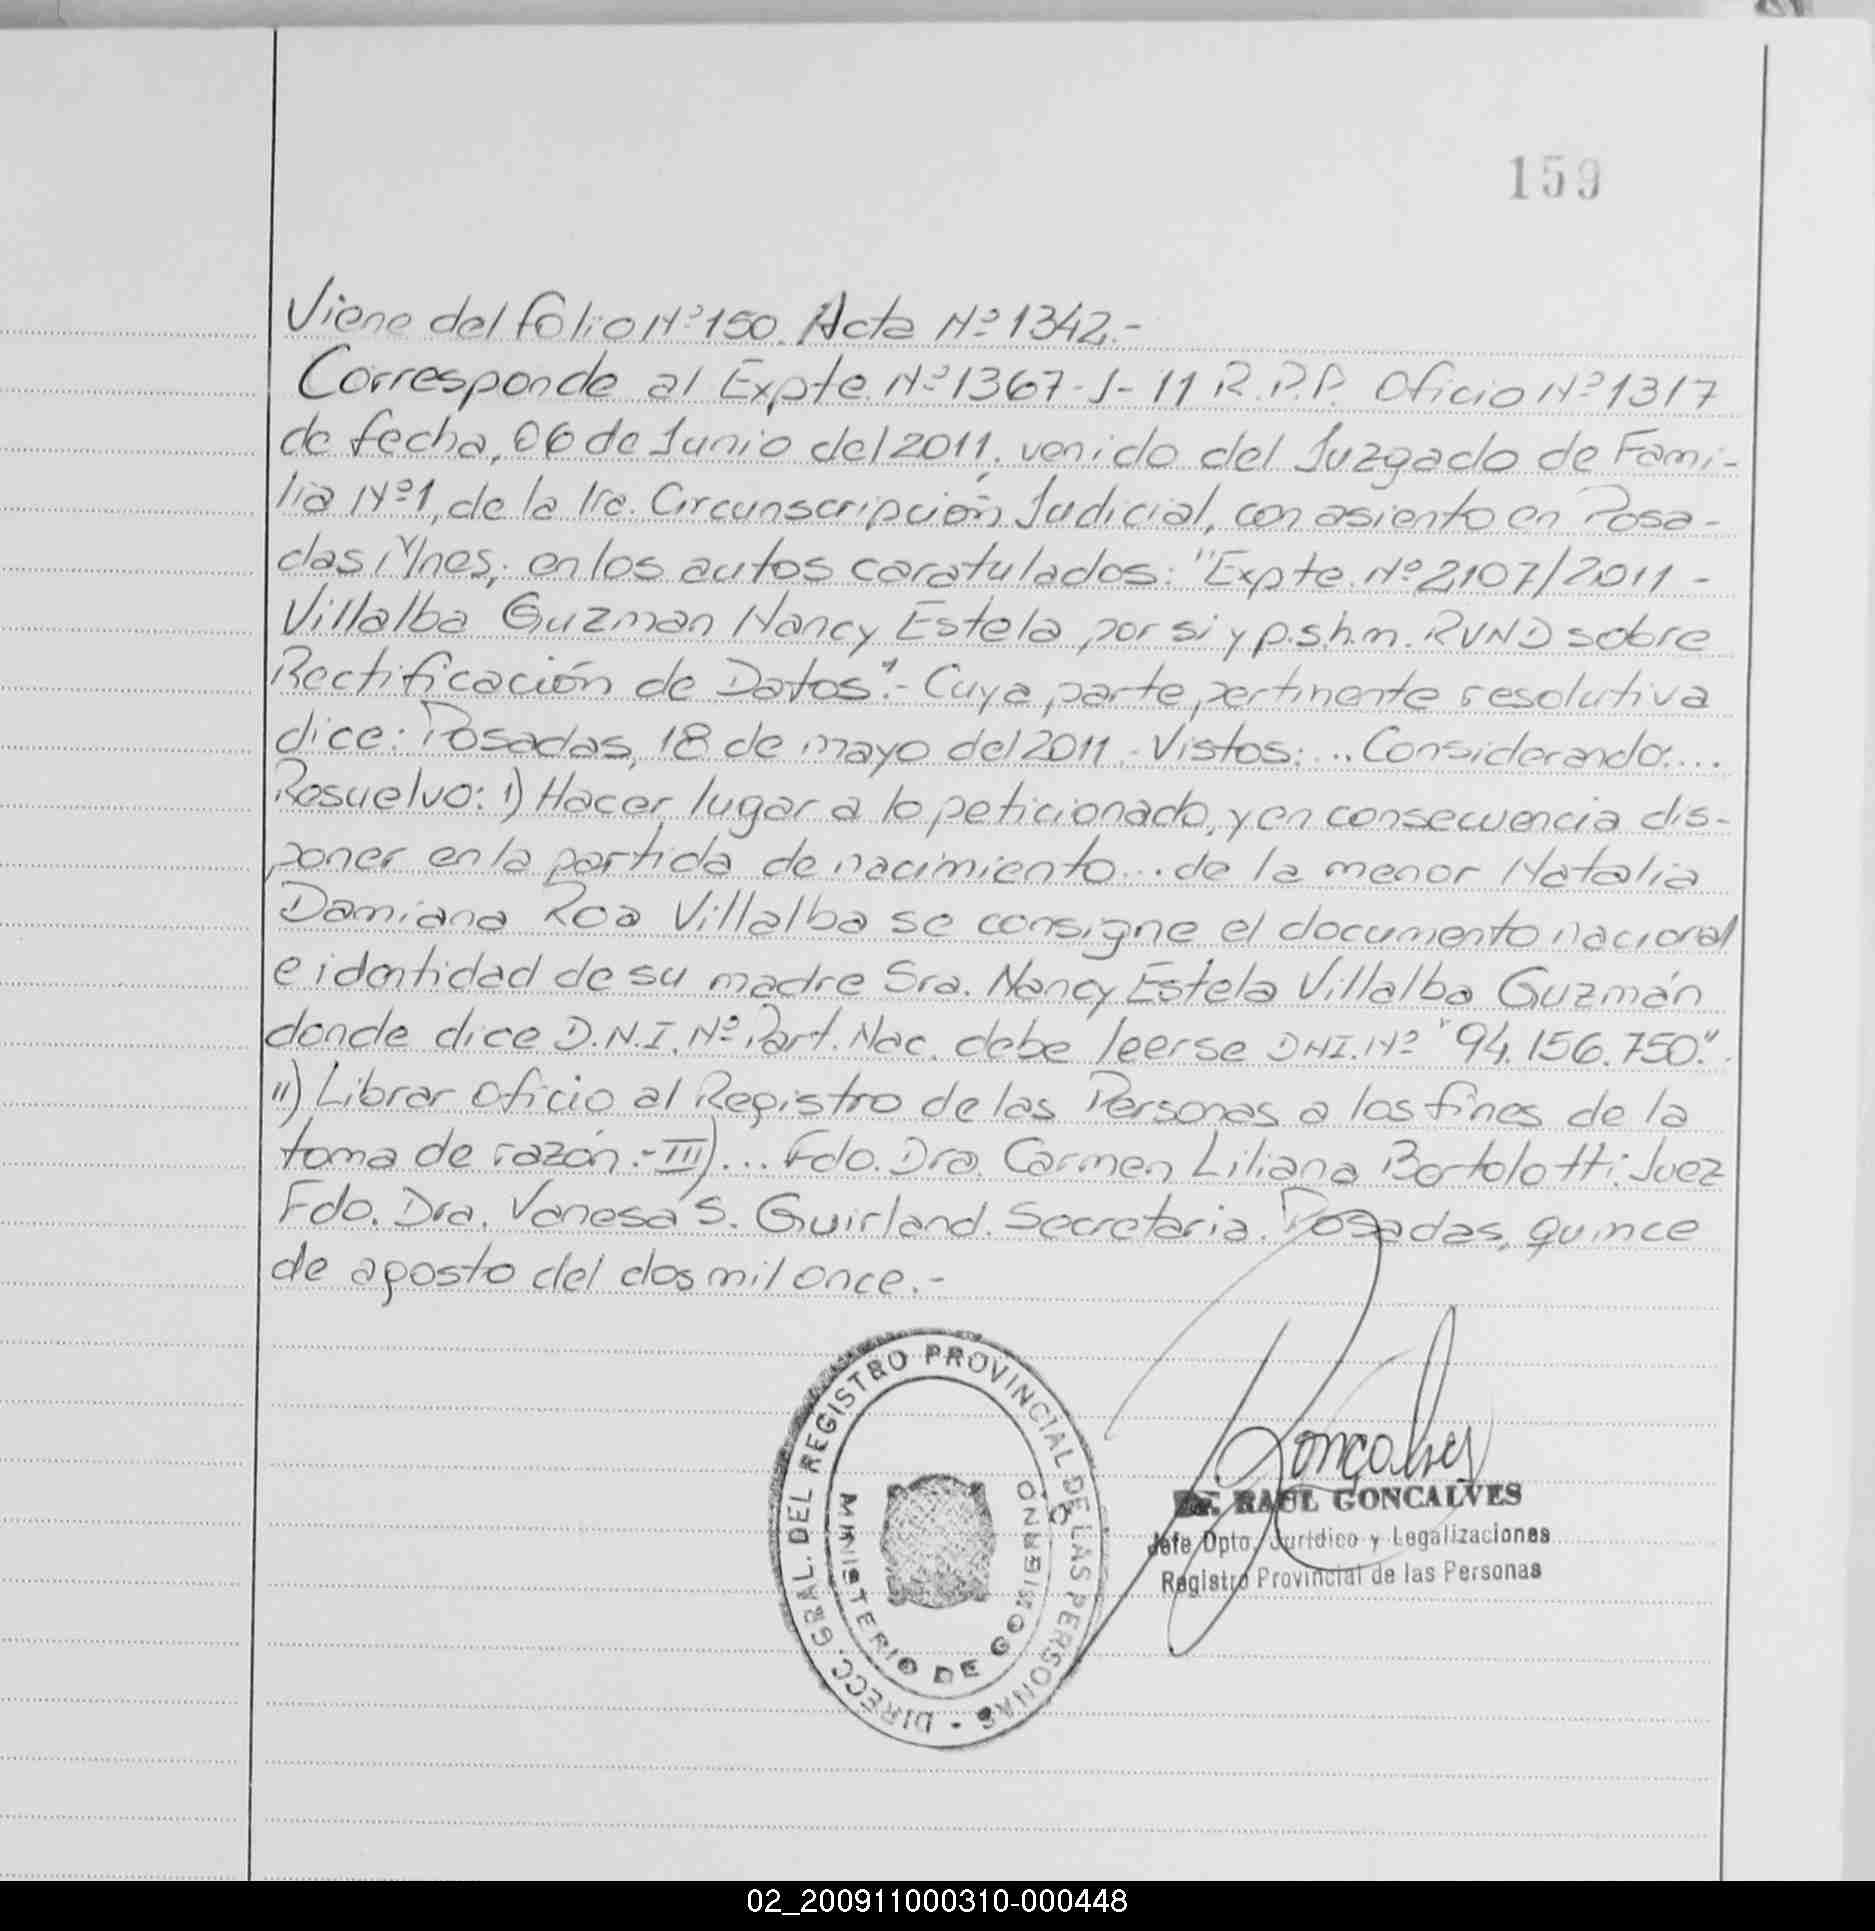 159
Viene del folio Nº 150. Acta Nº 1342.-
Corresponde al Expte. Nº 1367-J-11 R.P.P. Oficio Nº 1317
de fecha, 06 de Junio del 2011, venido del Juzgado de Fami-
lia Nº 1, de la 1ra. Circunscripción Judicial, con asiento en Posa-
das Mnes; en los autos caratulados: "Expte. Nº 2107/2011 -
Villalba Guzman Nancy Estela por si y p.s.h.m. RVND sobre
Rectificación de Datos".- Cuya parte pertinente resolutiva
dice: Posadas, 18 de mayo del 2011. Vistos:... Considerando:...
Resuelvo: 1) Hacer lugar a lo peticionado, y en consecuencia dis-
poner en la partida de nacimiento... de la menor Natalia
Damiana Roa Villalba se consigne el documento nacional
e identidad de su madre Sra. Nancy Estela Villalba Guzmán
donde dice D.N.I. Nº Part. Nac. debe leerse DNI. Nº "94.156.750".
II) Librar oficio al Registro de las Personas a los fines de la
toma de razón.- III)... Fdo. Dra. Carmen Liliana Bortolotti: Juez
Fdo. Dra. Vanesa S. Guirland. Secretaria. Posadas, quince
de agosto del dos mil once.-
DIRECC. GRAL. DEL REGISTRO PROVINCIAL DE LAS PERSONAS
MINISTERIO DE GOBIERNO
Goncalves
Dr. RAUL GONCALVES
Jefe Dpto. Jurídico y Legalizaciones
Registro Provincial de las Personas
02_200911000310-000448